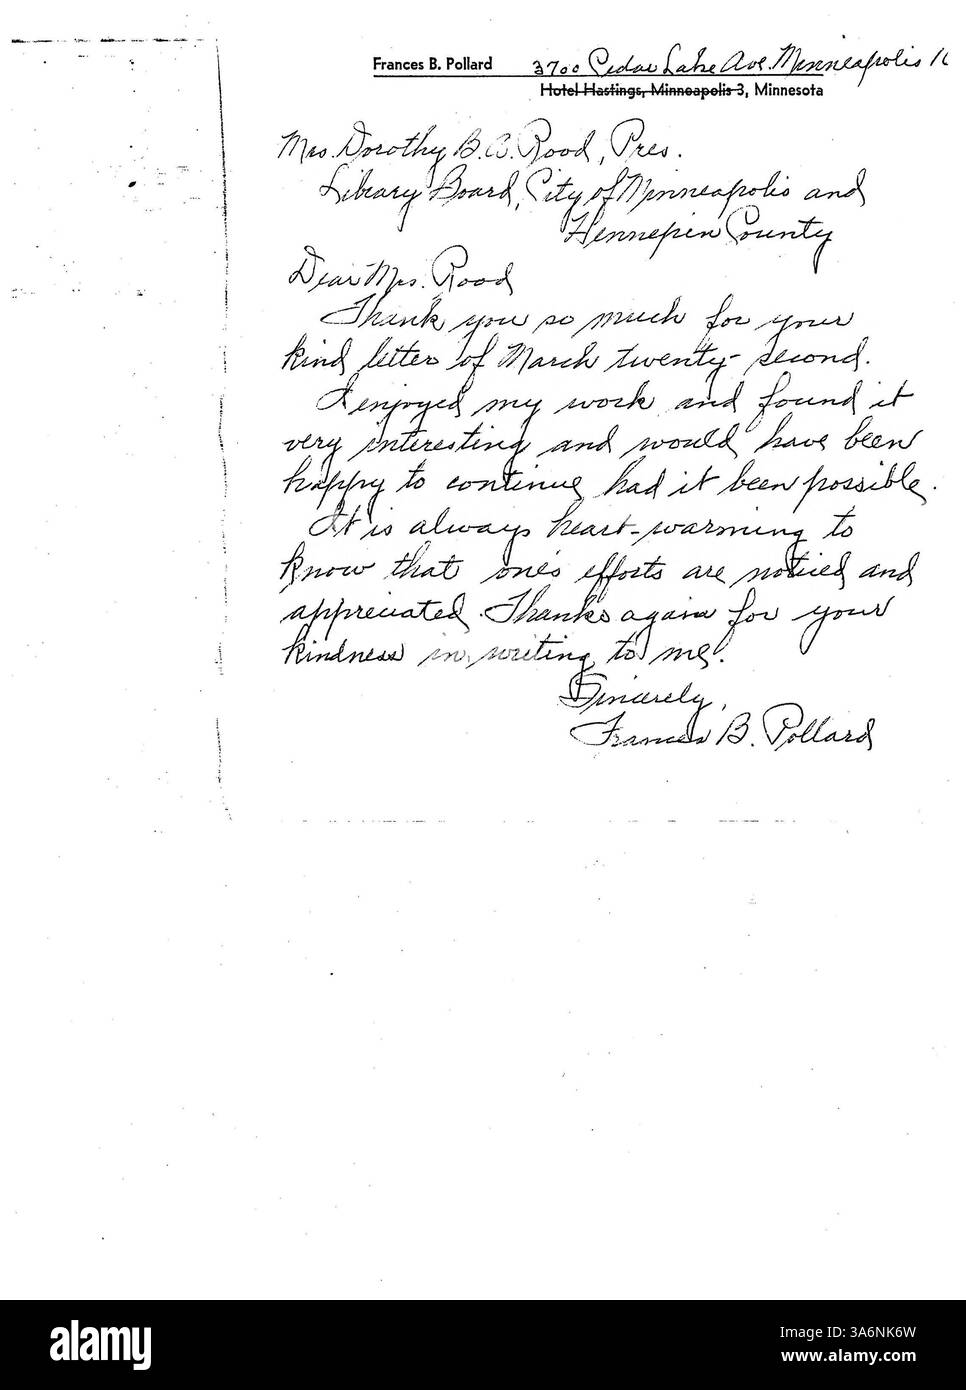 Frances B. Pollard 3700 Cedar Lake Ave. Minneapolis 16
Hotel Hastings, Minneapolis 3, Minnesota
Mrs. Dorothy B. A. Rood, Pres.
Library Board, City of Minneapolis and
Hennepin County
Dear Mrs. Rood
Thank you so much for your
kind letter of March twenty-second.
I enjoyed my work and found it
very interesting and would have been
happy to continue had it been possible.
It is always heart-warming to
know that one's efforts are noticed and
appreciated. Thanks again for your
kindness in writing to me.
Sincerely,
Frances B. Pollard
alamy
Image ID: 3A6NK6W
www.alamy.com